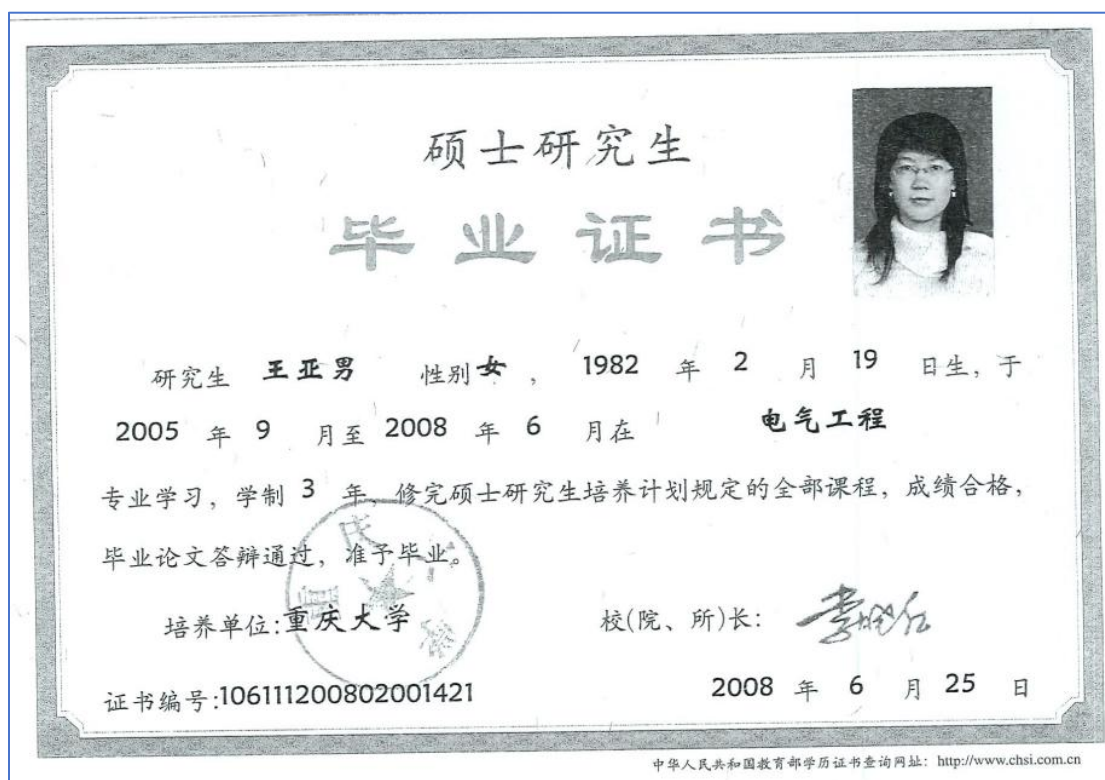 硕士研究生
毕业证书
研究生 王亚男 性别 女 , 1982 年 2 月 19 日生, 于
2005 年 9 月至 2008 年 6 月在 电气工程
专业学习, 学制 3 年, 修完硕士研究生培养计划规定的全部课程, 成绩合格,
毕业论文答辩通过, 准予毕业。
培养单位:重庆大学 校(院、所)长: 李晓红
证书编号:106111200802001421 2008 年 6 月 25 日
重庆大学
中华人民共和国教育部学历证书查询网址: http://www.chsi.com.cn